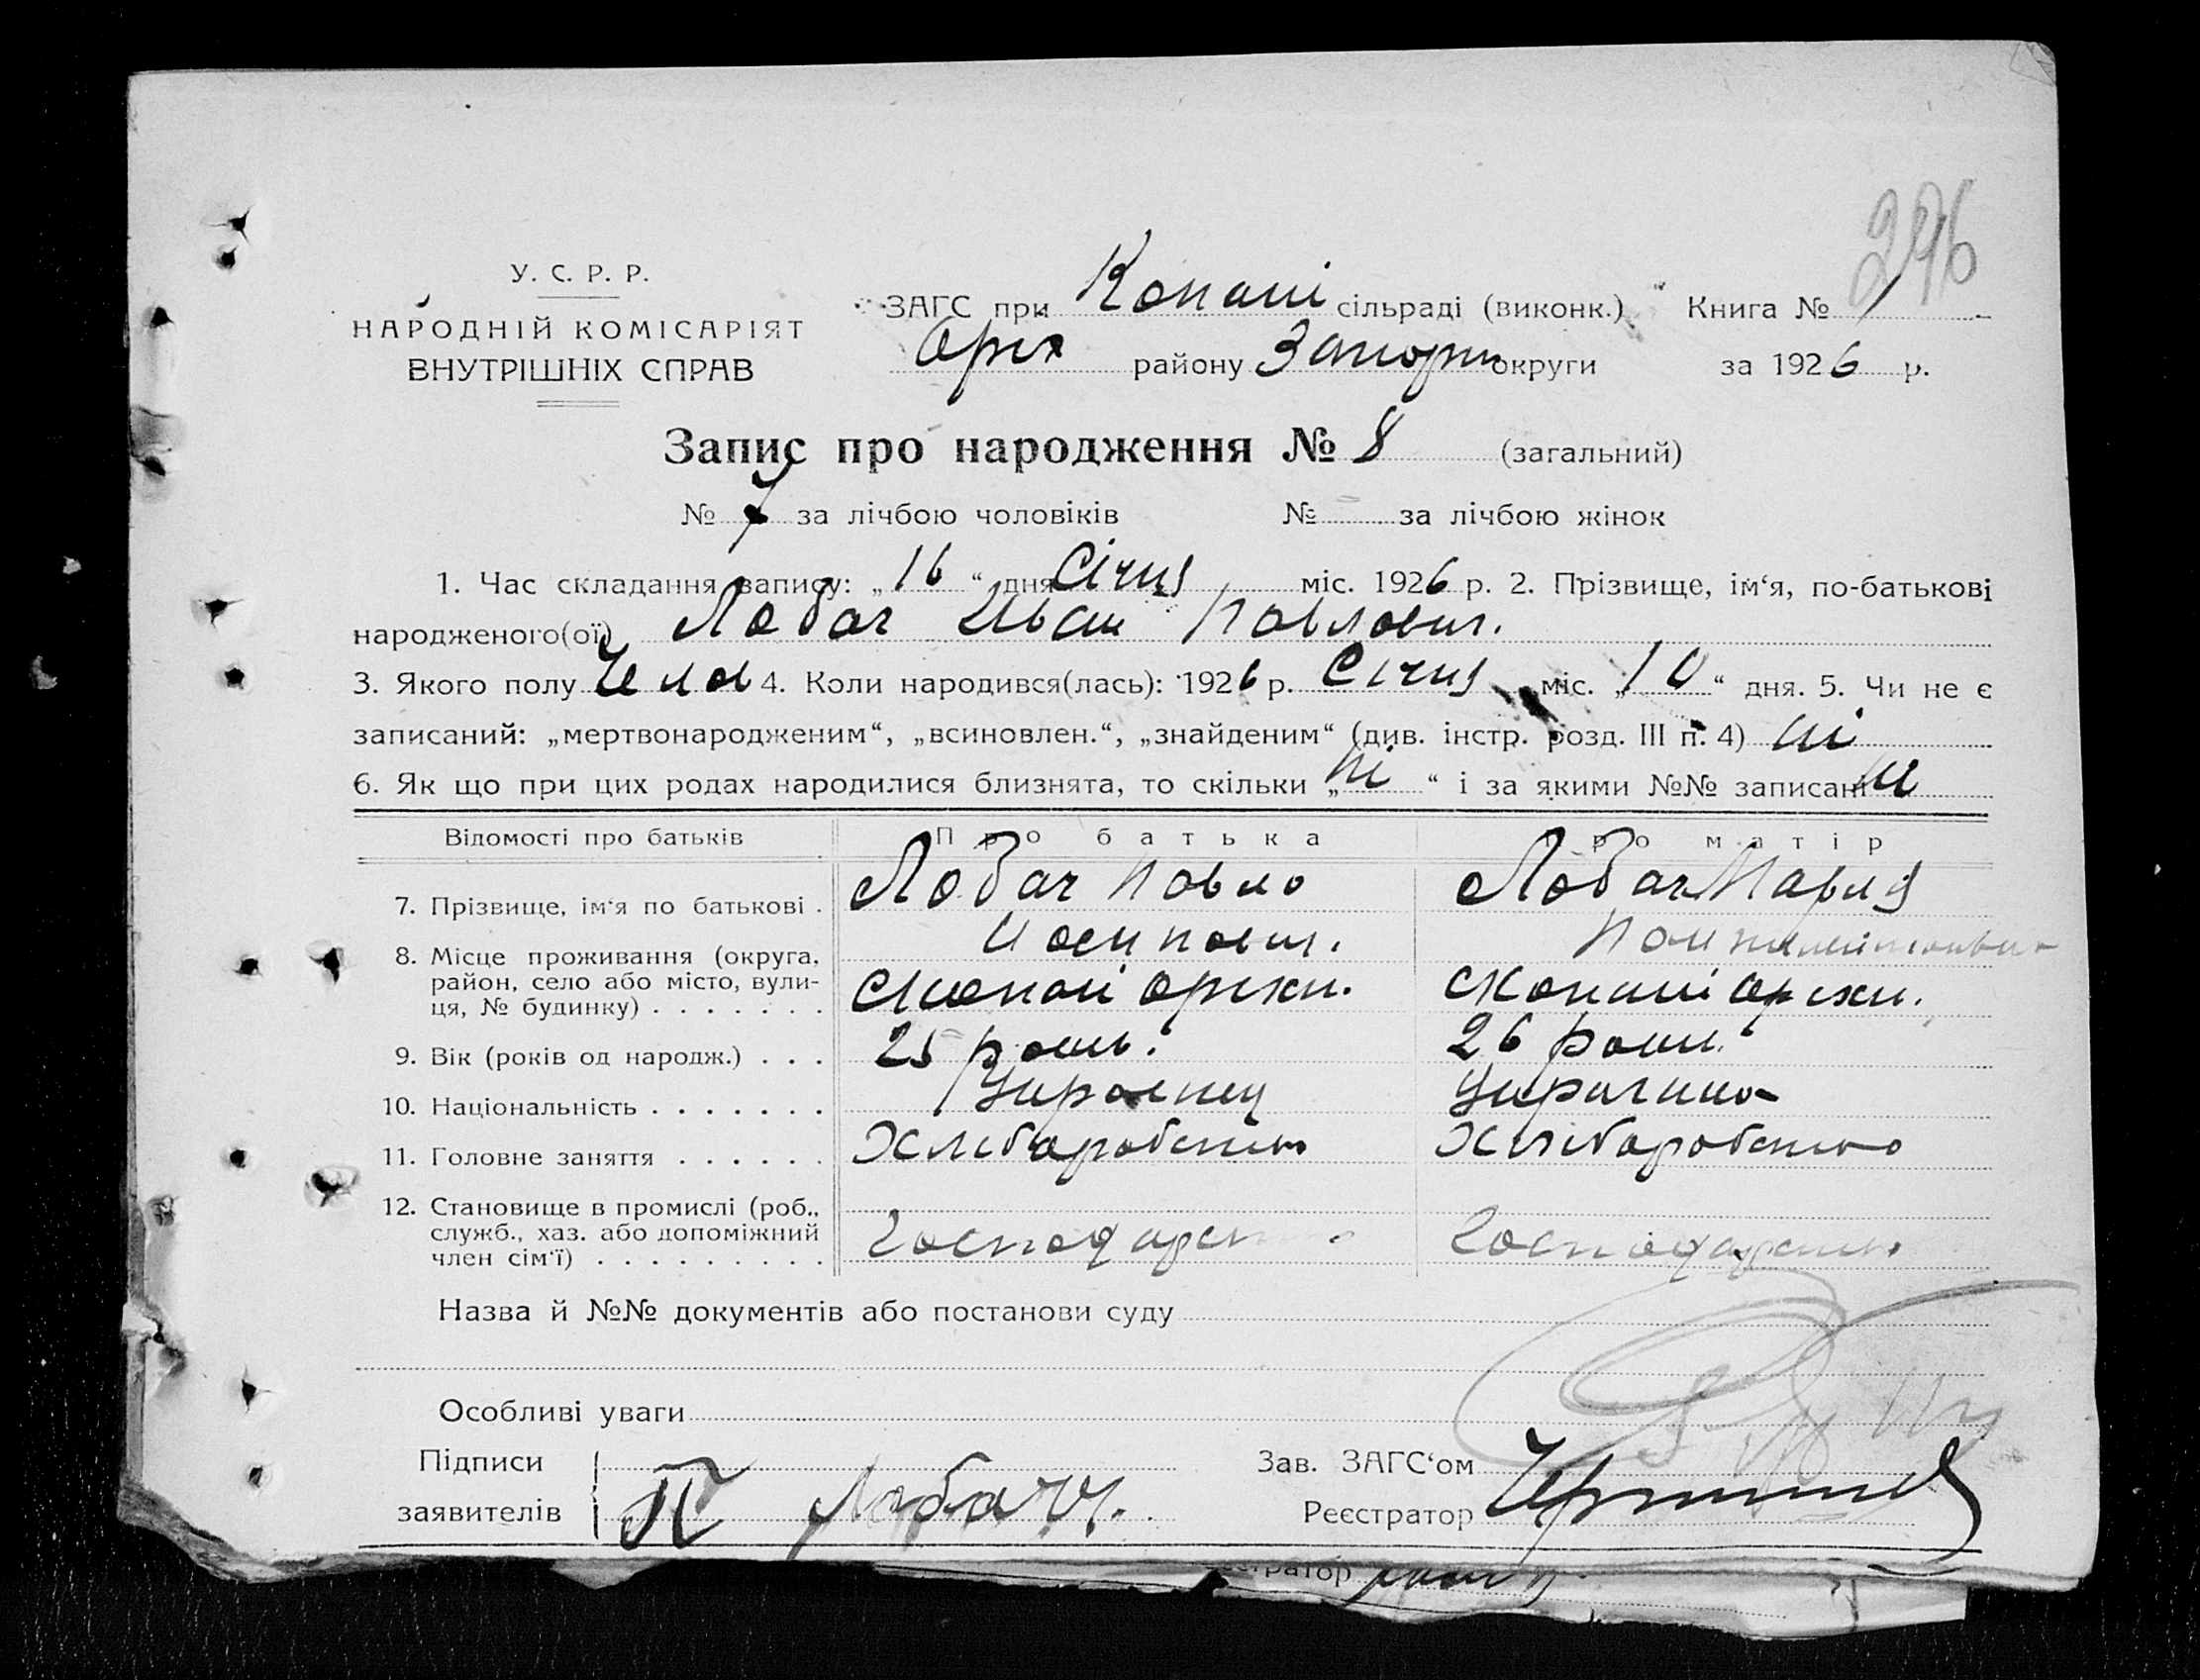 296
У. С. Р. Р.
НАРОДНІЙ КОМІСАРІЯТ
ВНУТРІШНІХ СПРАВ
ЗАГС при Копані сільраді (виконк.) Книга № 1
Оріх району Запоріж округи за 1926 р.
Запис про народження № 8 (загальний)
№ 7 за лічбою чоловіків № за лічбою жінок
1. Час складання запису: „16“ дня Січня міс. 1926 р. 2. Прізвище, ім‘я, по-батькові
народженого(ої) Лобач Иван Павлович.
3. Якого полу Чолов 4. Коли народився(лась): 1926 р. Січня міс. „10“ дня. 5. Чи не є
записаний: „мертвонародженим“, „всиновлен.“, „знайденим“ (див. інстр. розд. III п. 4) ні
6. Як що при цих родах народилися близнята, то скільки „ні“ і за якими №№ записані ні
Відомості про батьків Про батька Про матір
7. Прізвище, ім‘я по батькові . Лобач Павло Лобач Мария
Иосипович.
8. Місце проживання (округа,
район, село або місто, вули-
ця, № будинку) . . . . . . . С Копані Оріхи. С Копани Оріхи.
9. Вік (років од народж.) . . . 25 рош. 26 рош.
10. Національність . . . . . . . Украінец Украинка
11. Головне заняття . . . . . . Хліборобство Хліборобство
12. Становище в промислі (роб.,
служб., хаз. або допоміжний
член сім‘ї) . . . . . . . . . Господарст Господарство
Назва й №№ документів або постанови суду
Особливі уваги
Підписи
заявителів П Лобач
Зав. ЗАГС‘ом
Реєстратор
єстратор